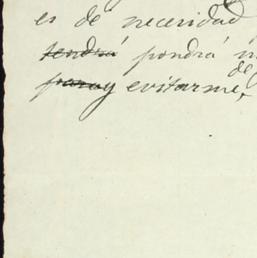 es de necesidad
tendrá pondrá
de
para y evitarme,